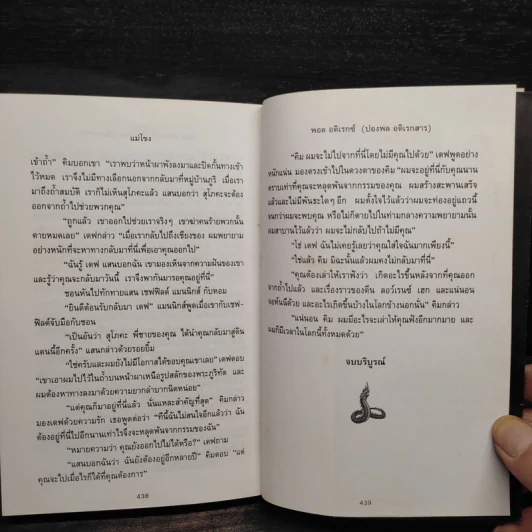 แม่โขง
เข้าถ้ำ” คิมบอกเขา “เราพบว่าหน้าผาพังลงมาและปิดกั้นทางเข้า
ไว้หมด เราจึงไม่มีทางเลือกนอกจากกลับมาที่หมู่บ้านภูริ เมื่อเรา
มาถึงถ้ำสมบัติ เราก็ไม่เห็นสุโภคะแล้ว แสนบอกว่า สุโภคะจะต้อง
ออกจากถ้ำไปช่วยพวกคุณ”
“ถูกแล้ว เขาออกไปช่วยเราจริงๆ เขาฆ่าคนร้ายพวกนั้น
ตายหมดเลย” เดฟกล่าว “เมื่อเรากลับไปถึงเชียงของ ผมพยายาม
อย่างหนักที่จะหาทางกลับมาที่นี่เพื่อเอาคุณออกไป”
“ฉันรู้ เดฟ แสนบอกฉัน เขามองเห็นจากความฝันของเขา
และรู้ว่าคุณจะกลับมาวันนี้ เราจึงพากันมารอคุณอยู่ที่นี่”
ชอนหันไปทักทายแสน เชฟฟิลด์ แมนนิกส์ กับหอม
“ยินดีต้อนรับกลับมา เดฟ” แมนนิกส์พูดเมื่อเขากับเชฟ-
ฟิลด์จับมือกับชอน
“เป็นอันว่า สุโภคะ พี่ชายของคุณ ได้นำคุณกลับมาสู่ดิน
แดนนี้อีกครั้ง” แสนกล่าวด้วยรอยยิ้ม
“ใช่ครับและผมยังไม่มีโอกาสได้ขอบคุณเขาเลย” เดฟตอบ
“เขาเอาผมไปไว้ในถ้ำบนหน้าผาเหนือรูปสลักของพระภูริทัต และ
ผมต้องหาทางลงมาด้วยความยากลำบากนิดหน่อย”
“แต่คุณก็มาอยู่ที่นี่แล้ว นั่นแหละสำคัญที่สุด” คิมกล่าว
มองเดฟด้วยความรัก เธอพูดต่อว่า “ที่นี้ฉันไม่สนใจอีกแล้วว่า ฉัน
ต้องอยู่ที่นี่ไปอีกนานเท่าไรจึงจะหลุดพ้นจากกรรมของฉัน”
“หมายความว่า คุณยังออกไปไม่ได้หรือ?” เดฟถาม
“แสนบอกฉันว่า ฉันยังต้องอยู่อีกหลายปี” คิมตอบ “แต่
คุณจะไปเมื่อไรก็ได้ที่คุณต้องการ”
438
พอล อดิเรกซ์ (ปองพล อดิเรกสาร)
“คิม ผมจะไม่ไปจากที่นี่โดยไม่มีคุณไปด้วย” เดฟพูดอย่าง
หนักแน่น มองตรงเข้าไปในดวงตาของคิม “ผมจะอยู่ที่นี่กับคุณนาน
ตราบเท่าที่คุณจะหลุดพ้นจากกรรมของคุณ ผมสร้างสะพานเสร็จ
แล้วและไม่มีพันธะใดๆ อีก ผมตั้งใจไว้แล้วว่าผมจะท่องอยู่แถวนี้
จนกว่าผมจะพบคุณ หรือไม่ก็ตายไปในท่ามกลางความพยายามนั้น
ผมสาบานไว้แล้วว่า ผมจะไม่กลับไปถ้าไม่มีคุณ”
“โธ่ เดฟ ฉันไม่เคยรู้เลยว่าคุณใส่ใจฉันมากเพียงนี้”
“ใช่แล้ว คิม มิฉะนั้นแล้วผมคงไม่กลับมาที่นี่”
“คุณต้องเล่าให้เราฟังว่า เกิดอะไรขึ้นหลังจากที่คุณออก
จากถ้ำไปแล้ว และเรื่องราวของดีน ลอว์เรนซ์ เฮก และแน่นอน
ลุงพันนีด้วย และอะไรเกิดขึ้นบ้างในโลกข้างนอกนั่น” คิมกล่าว
“แน่นอน คิม ผมมีอะไรจะเล่าให้คุณฟังอีกมากมาย และ
ผมก็มีเวลาในโลกนี้ทั้งหมดด้วย”
จบบริบูรณ์
439